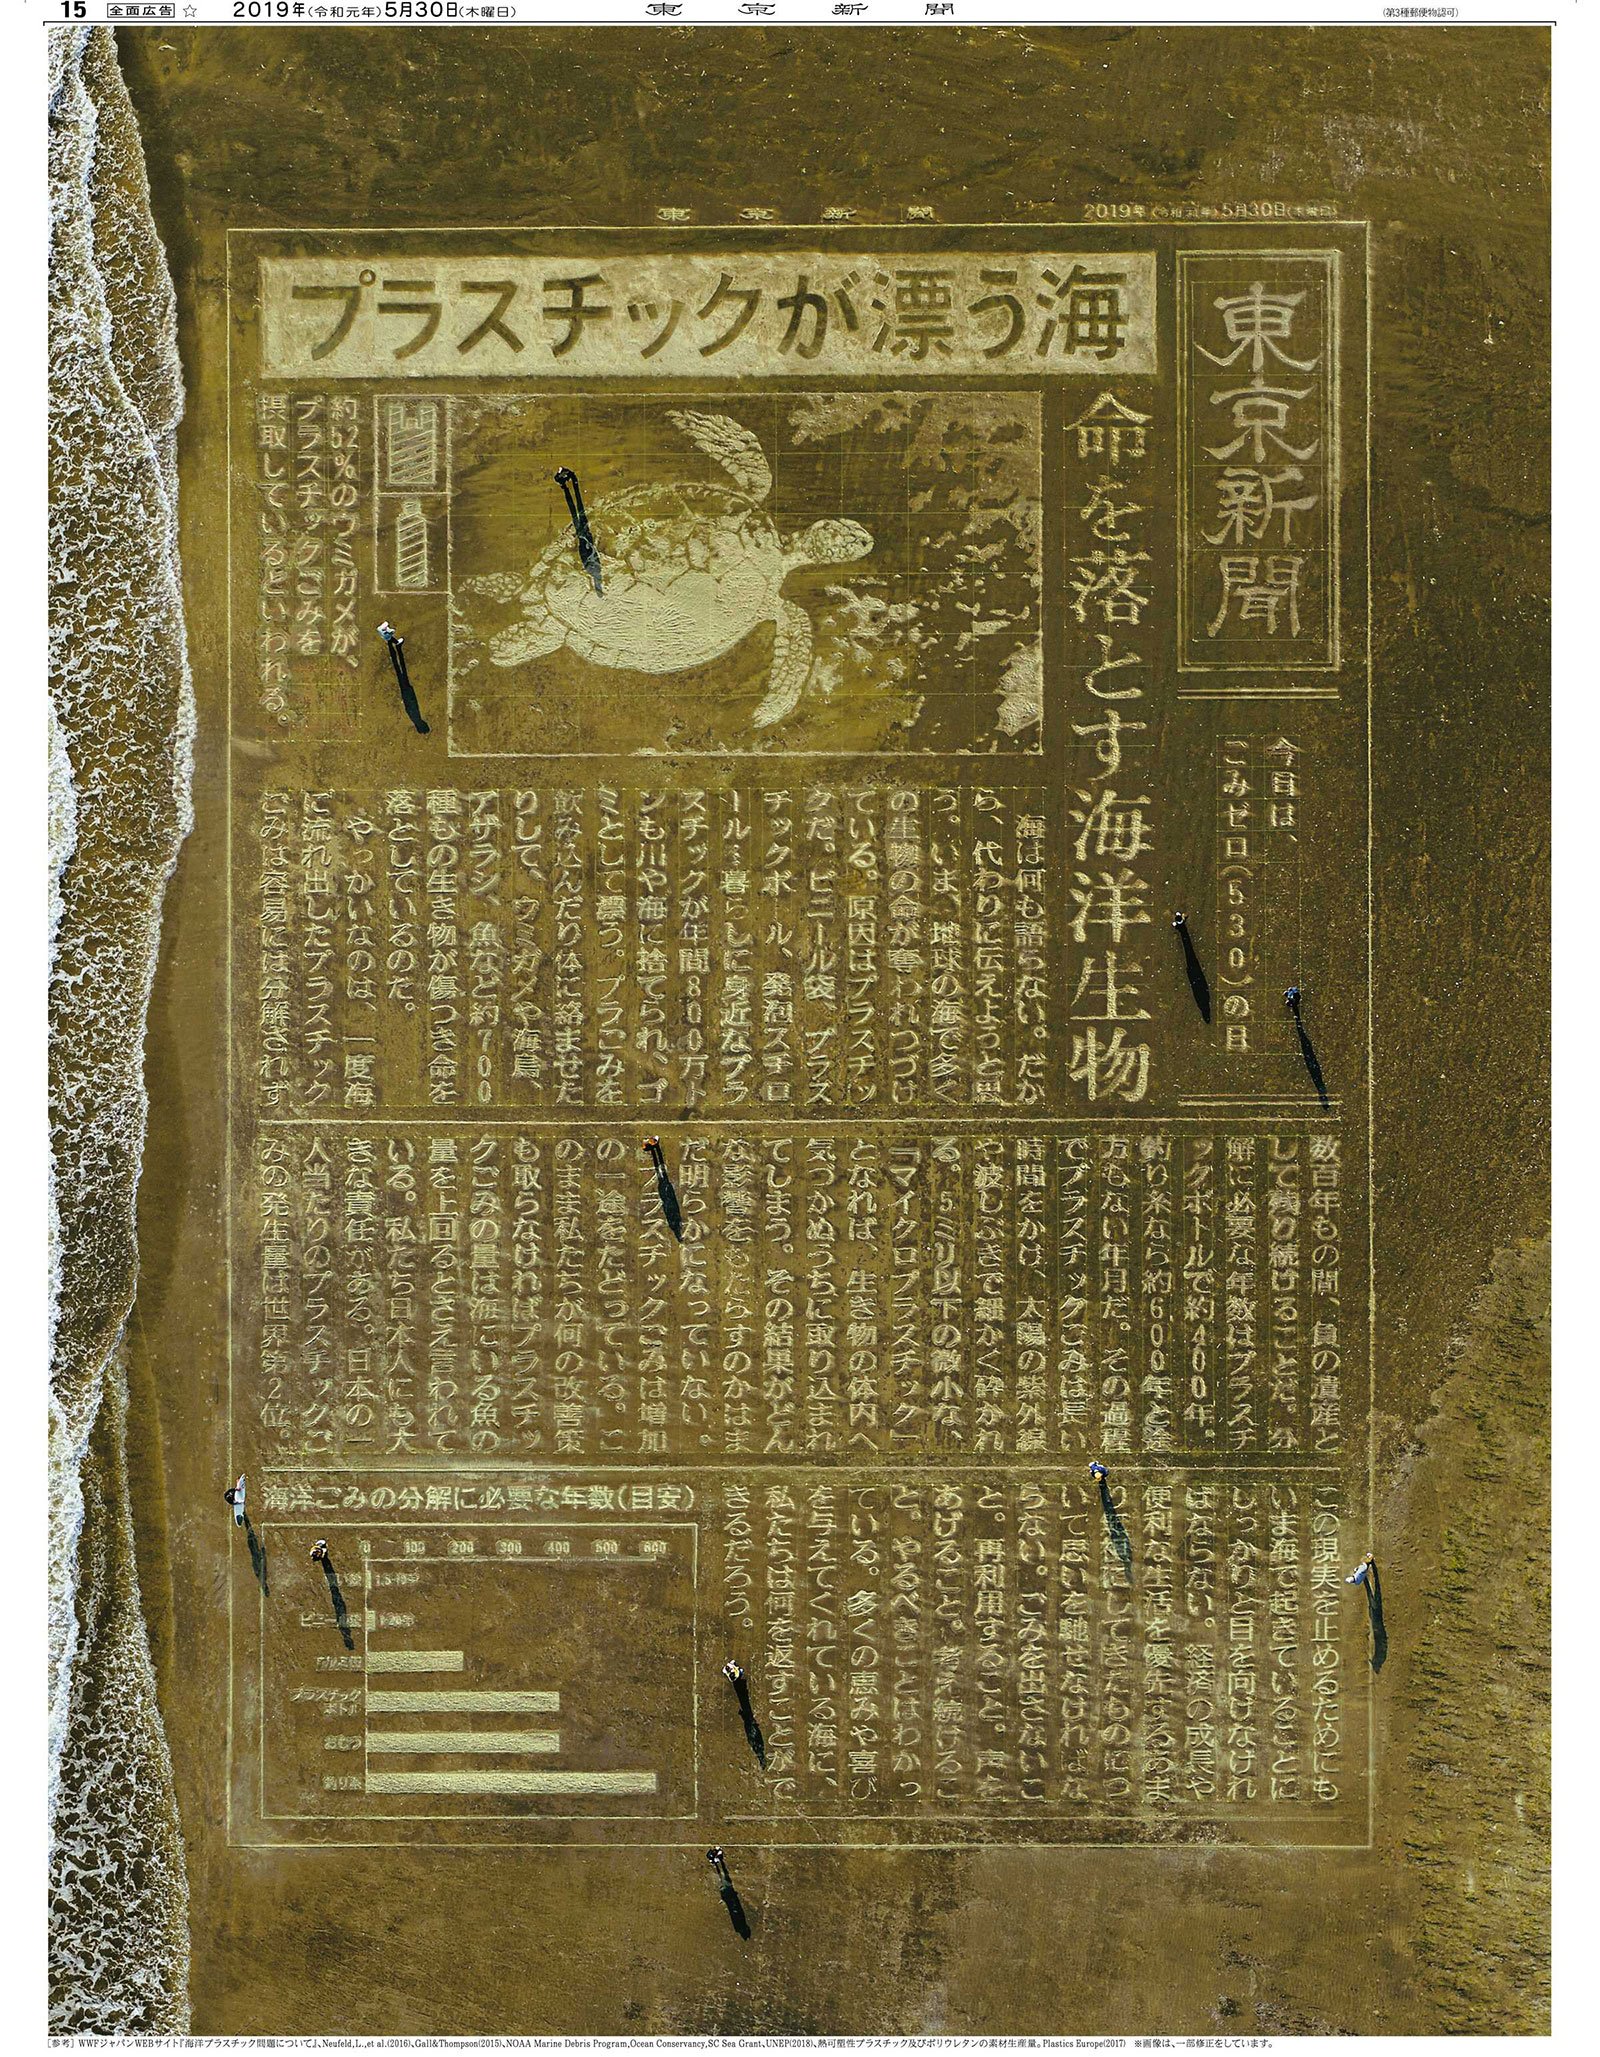 15 全面広告 ☆ 2019年(令和元年)5月30日(木曜日) 東京新聞 (第3種郵便物認可)
東京新聞 2019年(令和元年)5月30日(木曜日)
東京新聞
プラスチックが漂う海
命を落とす海洋生物
今日は、
ごみゼロ(530)の日
約52%のウミガメが、
プラスチックごみを
摂取しているといわれる。
海は何も語らない。だか
ら、代わりに伝えようと思
う。いま、地球の海で多く
の生物の命が奪われつづけ
ている。原因はプラスチッ
クだ。ビニール袋、プラス
チックボトル、発泡スチロ
ール…暮らしに身近なプラ
スチックが年間800万ト
ンも川や海に捨てられ、ゴ
ミとして漂う。プラごみを
飲み込んだり体に絡ませた
りして、ウミガメや海鳥、
アザラシ、魚など約700
種もの生き物が傷つき命を
落としているのだ。
やっかいなのは、一度海
に流れ出したプラスチック
ごみは容易には分解されず
数百年もの間、負の遺産と
して残り続けることだ。分
解に必要な年数はプラスチ
ックボトルで約400年。
釣り糸なら約600年と途
方もない年月だ。その過程
でプラスチックごみは長い
時間をかけ、太陽の紫外線
や波しぶきで細かく砕かれ
る。5ミリ以下の微小な、
「マイクロプラスチック」
となれば、生き物の体内へ
気づかぬうちに取り込まれ
てしまう。その結果がどん
な影響をもたらすのかはま
だ明らかになっていない。
プラスチックごみは増加
の一途をたどっている。こ
のまま私たちが何の改善策
も取らなければプラスチッ
クごみの量は海にいる魚の
量を上回るとさえ言われて
いる。私たち日本人にも大
きな責任がある。日本の一
人当たりのプラスチックご
みの発生量は世界第2位。
この現実を止めるためにも
いま海で起きていることに
しっかりと目を向けなけれ
ばならない。経済の成長や
便利な生活を優先するあま
りにしてきたものにつ
いて思いを馳せなければな
らない。ごみを出さないこ
と。再利用すること。声を
あげること。考え続けるこ
と。やるべきことはわかっ
ている。多くの恵みや喜び
を与えてくれている海に、
私たちは何を返すことがで
きるだろう。
海洋ごみの分解に必要な年数(目安)
0 100 200 300 400 500 600
アルミ缶
プラスチック
ボトル
おむつ
釣り糸
[参考] WWFジャパンWEBサイト『海洋プラスチック問題について』、Neufeld,L.,et al.(2016)、Gall&Thompson(2015)、NOAA Marine Debris Program,Ocean Conservancy,SC Sea Grant、UNEP(2018)、熱可塑性プラスチック及びポリウレタンの素材生産量。Plastics Europe(2017) ※画像は、一部修正をしています。